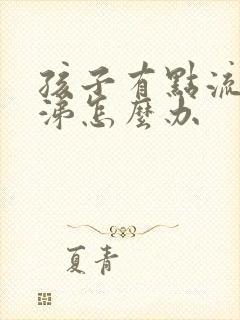 孩子有點流
涕怎麼办
夏青